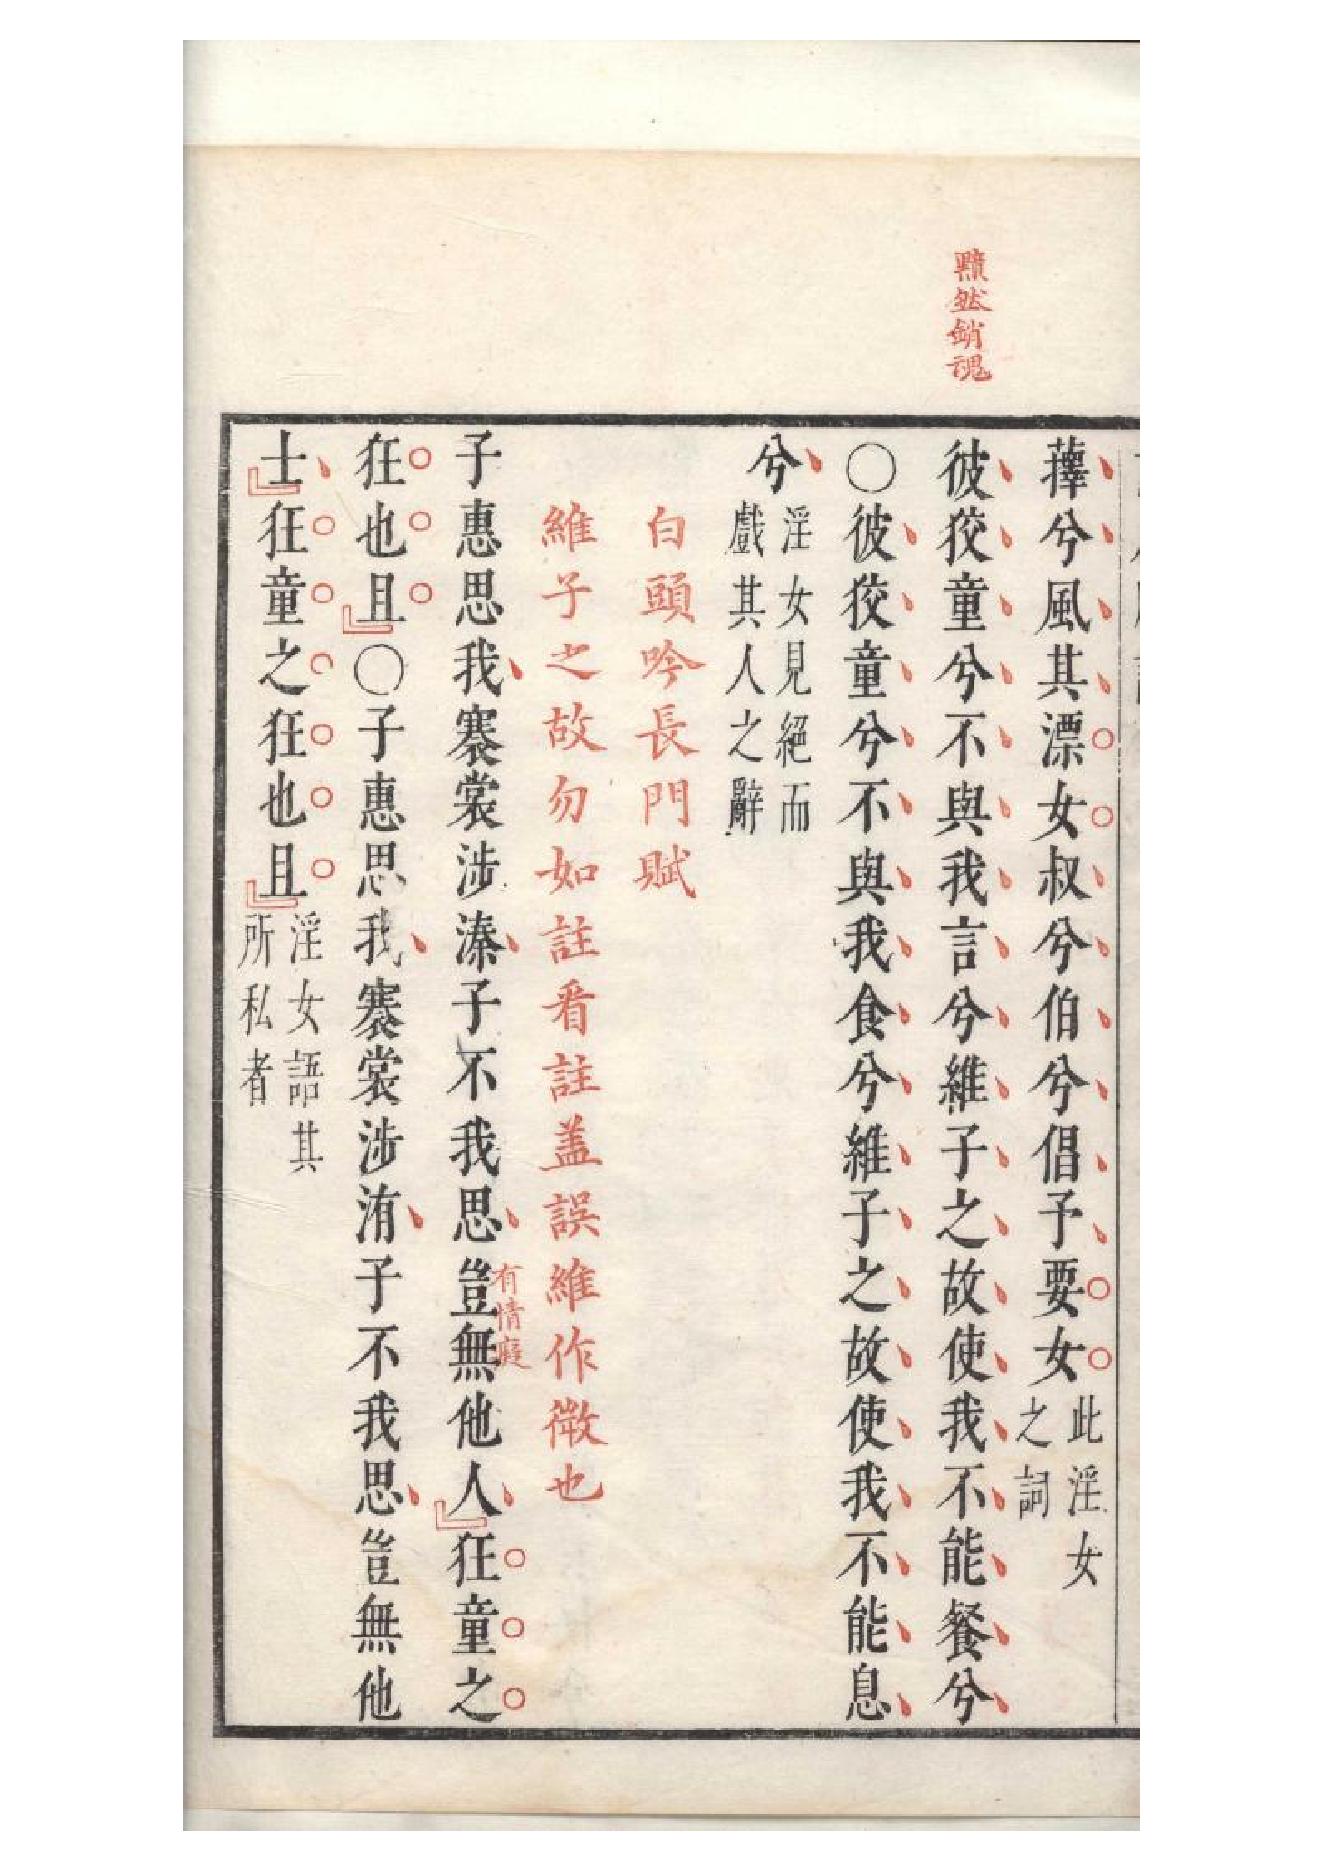 黯然銷魂
蘀兮風其漂女叔兮伯兮倡予要女
此淫女
之詞
彼狡童兮不與我言兮維子之故使我不能餐兮
〇彼狡童兮不與我食兮維子之故使我不能息
兮
淫女見絕而
戲其人之辭
白頭吟長門賦
維子之故勿如註看註蓋誤維作微也
子惠思我褰裳涉溱子不我思豈無他人狂童之
有情癡
狂也且〇子惠思我褰裳涉洧子不我思豈無他
士狂童之狂也且
淫女語其
所私者